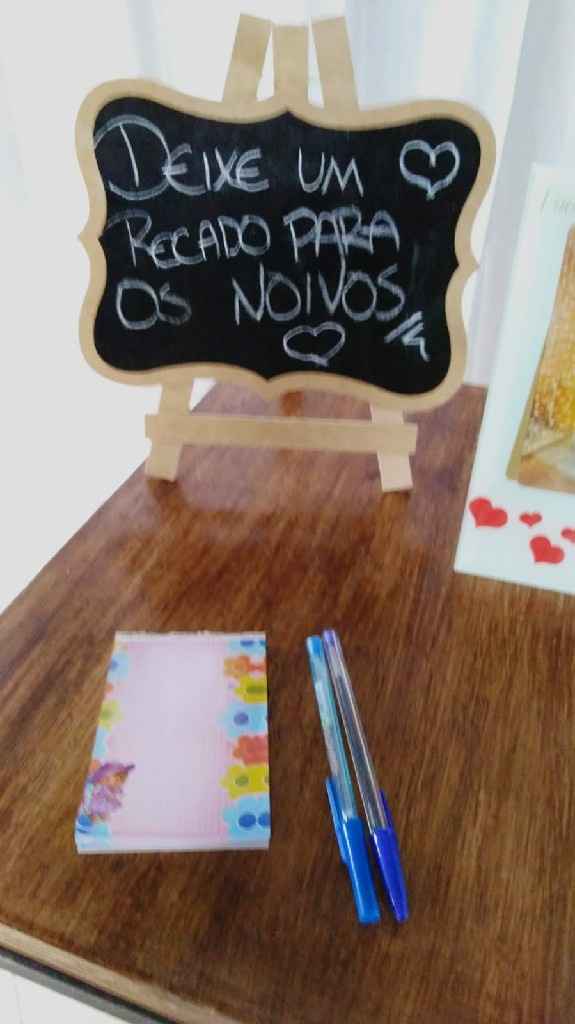 DEIXE UM
RECADO PARA
OS NOIVOS